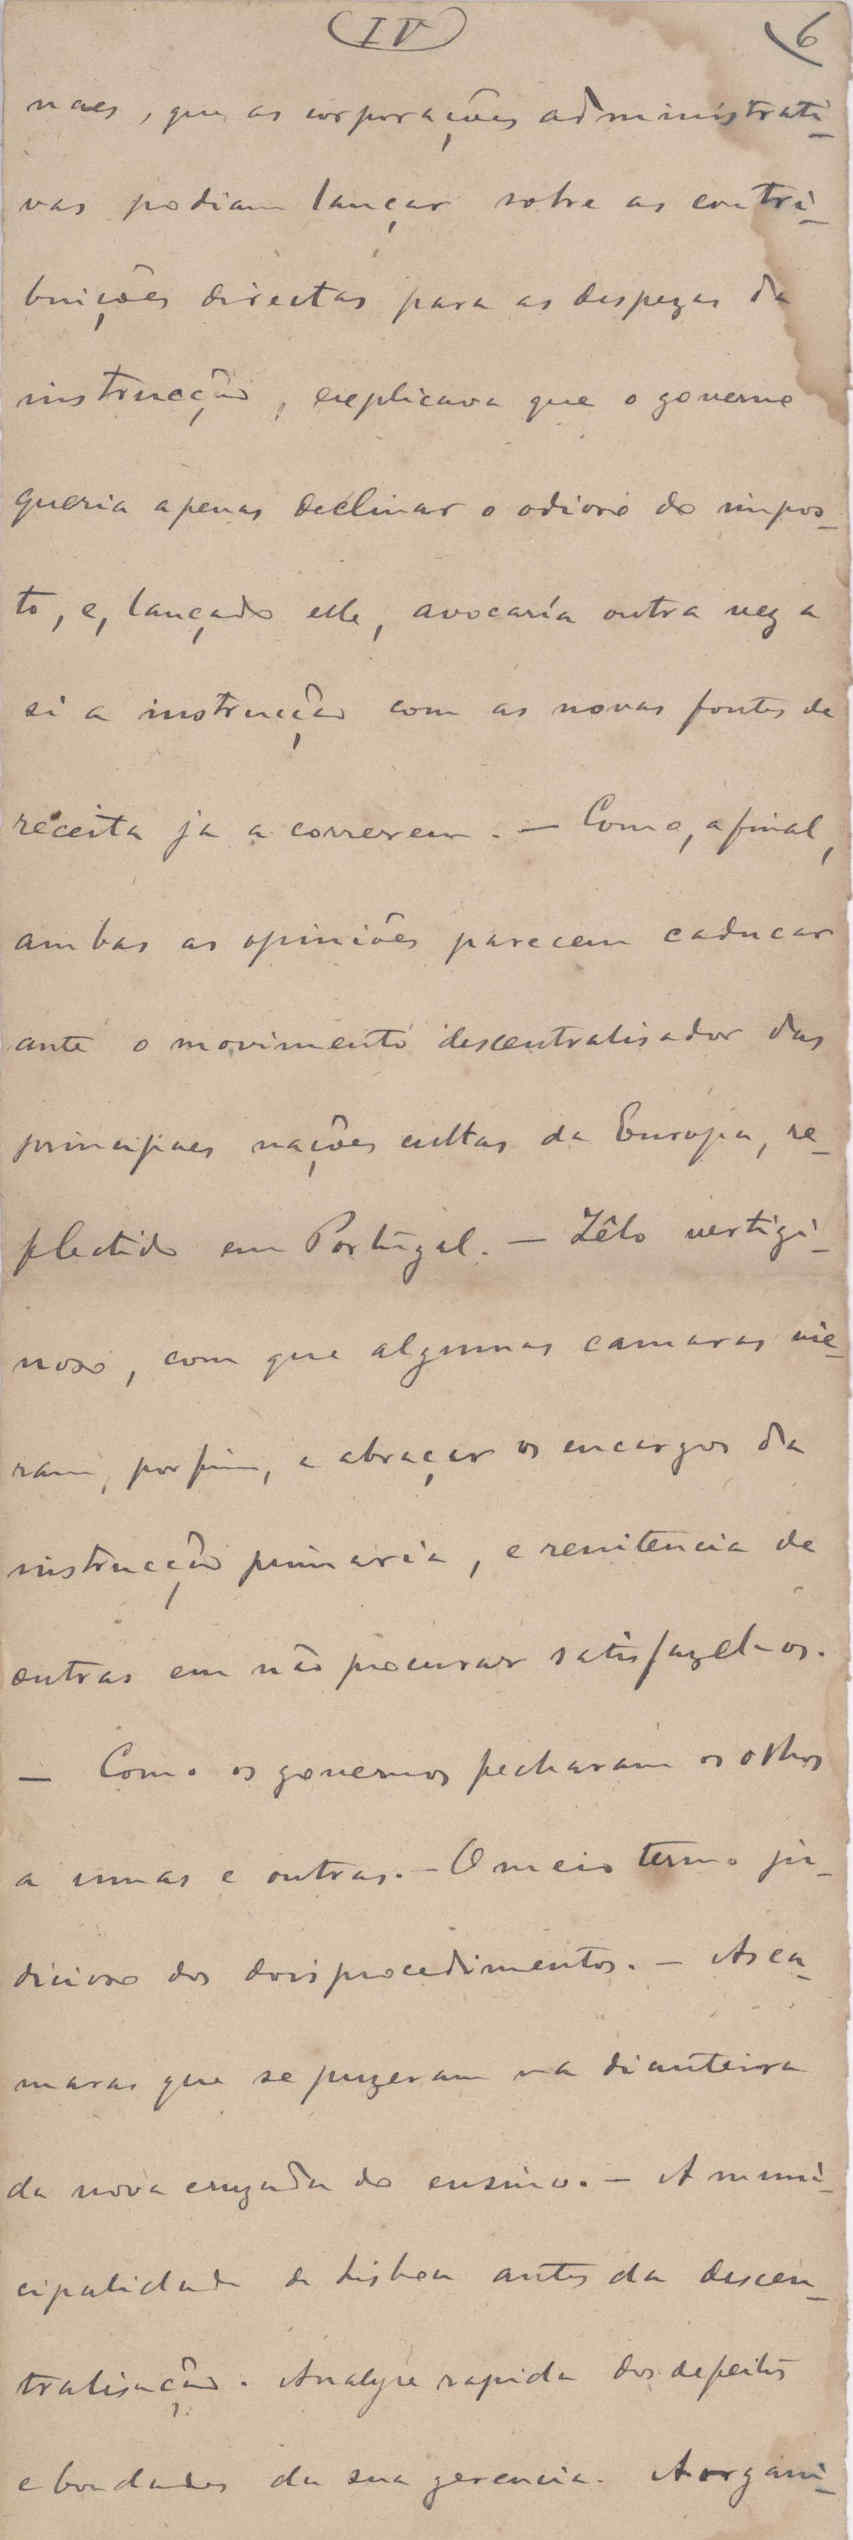 IV 6
naes, que as corporações administrati-
vas podiam lançar sobre as contri-
buições directas para as despezas da
instrucção, explicava que o governo
queria apenas declinar o odioso do impos-
to, e, lançado elle, avocaria outra vez a
si a instrucção com as novas fontes de
receita ja a correrem. — Como, afinal,
ambas as opiniões parecem caducar
ante o movimento descentralisador das
principaes nações cultas da Europa, re-
flectido em Portugal. — Zêlo vertigi-
noso, com que algumas camaras vie-
ram, por fim, a abraçar os encargos da
instrucção primaria, e renitencia de
outras em não procurar satisfazel-os.
— Como os governos fecharam os olhos
a umas e outras. — O meio termo ju-
dicioso dos dois procedimentos. — As ca-
maras que se puzeram na dianteira
da nova cruzada do ensino. — A muni-
cipalidade de Lisboa antes da descen-
tralisação. Analyse rapida dos defeitos
e bondades da sua gerencia. A organi-